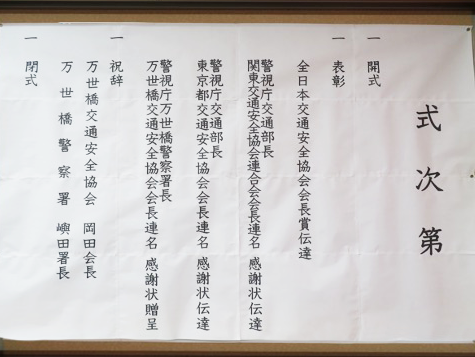 式次第
一 開式
一 表彰
全日本交通安全協会会長賞伝達
警視庁交通部長
関東交通安全協会連合会会長連名 感謝状伝達
警視庁交通部長
東京都交通安全協会会長連名 感謝状伝達
警視庁万世橋警察署長
万世橋交通安全協会会長連名 感謝状贈呈
一 祝辞
万世橋交通安全協会 岡田会長
万世橋警察署 嶼田署長
一 閉式